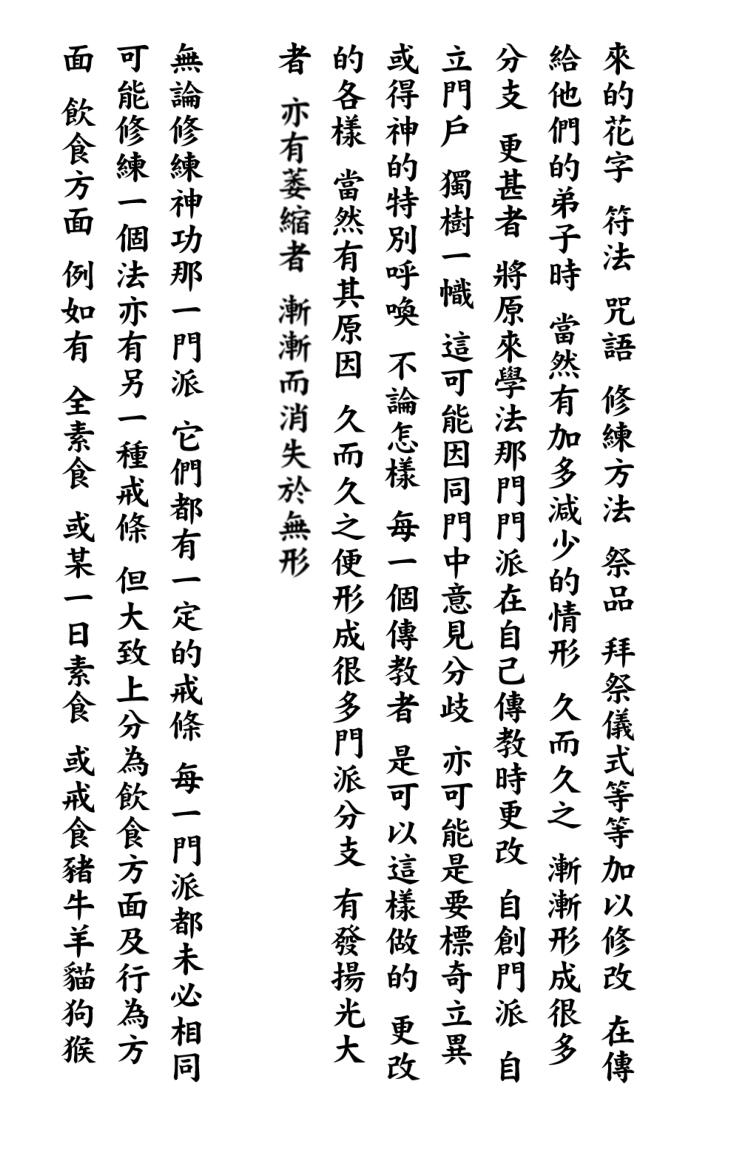 來的花字 符法 咒語 修練方法 祭品 拜祭儀式等等加以修改 在傳
給他們的弟子時 當然有加多減少的情形 久而久之 漸漸形成很多
分支 更甚者 將原來學法那門門派在自己傳教時更改 自創門派 自
立門戶 獨樹一幟 這可能因同門中意見分歧 亦可能是要標奇立異
或得神的特別呼喚 不論怎樣 每一個傳教者 是可以這樣做的 更改
的各樣 當然有其原因 久而久之便形成很多門派分支 有發揚光大
者 亦有萎縮者 漸漸而消失於無形
無論修練神功那一門派 它們都有一定的戒條 每一門派都未必相同
可能修練一個法亦有另一種戒條 但大致上分為飲食方面及行為方
面 飲食方面 例如有 全素食 或某一日素食 或戒食豬牛羊貓狗猴